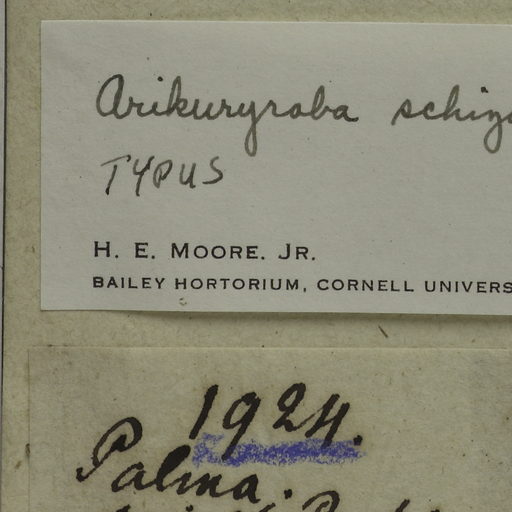 Arikuryroba schizo
TYPUS
H. E. MOORE. JR.
BAILEY HORTORIUM, CORNELL UNIVERS
1924.
Palma.